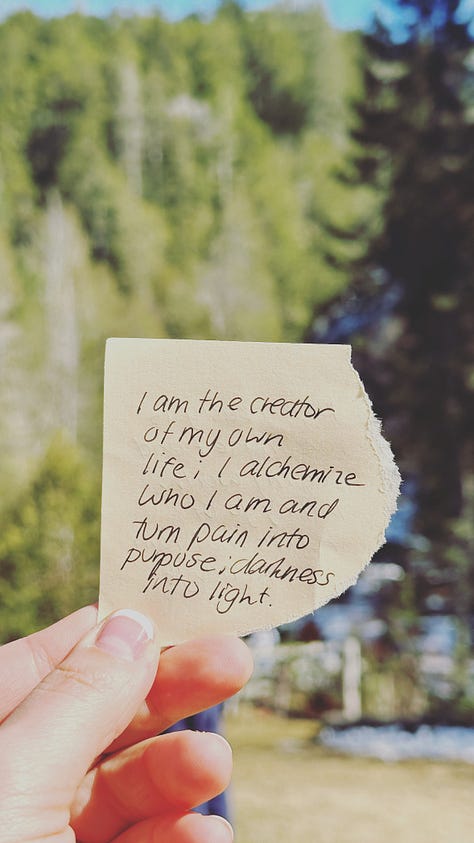 I am the creator
of my own
life; I alchemize
who I am and
turn pain into
purpose; darkness
into light.